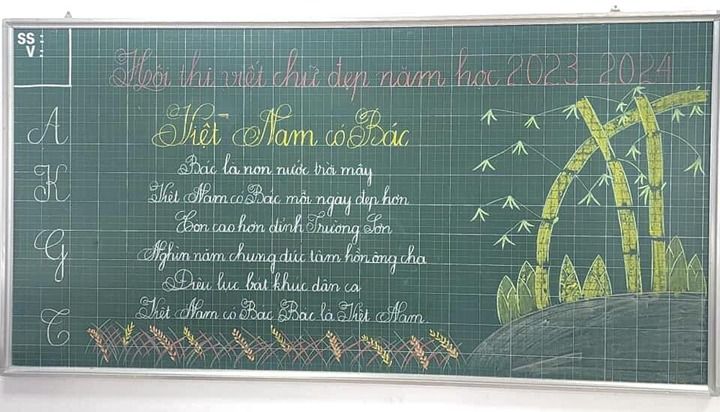 SS :
V :
Hội thi viết chữ đẹp năm học 2023 2024
A
K
G
C
Việt Nam có Bác
Bác là non nước trời mây
Việt Nam có Bác mỗi ngày đẹp hơn
Còn cao hơn đỉnh Trường Sơn
Nghìn năm chung đúc tâm hồn ông cha
Điệu lục bát khúc dân ca
Việt Nam có Bác Bác là Việt Nam